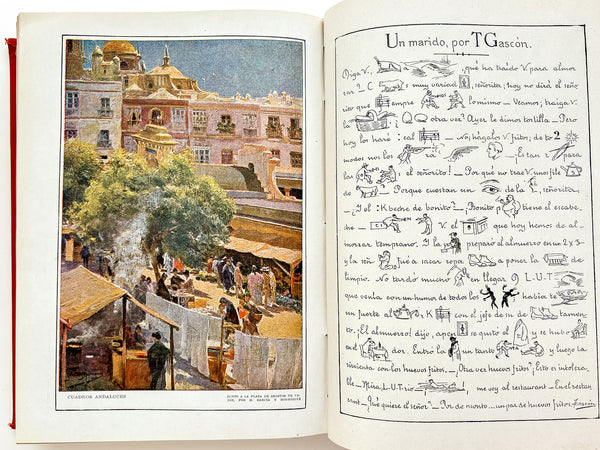 CUADROS ANDALUCES
JUNTO A LA PLAZA DE ABASTOS DE CÁ-
DIZ, POR M. GARCIA Y RODRIGUEZ
Un marido, por T Gascón.
Diga V., a , ¿qué ha traído V. para almor
zar? C es muy variad , señorita; hoy no dirá el seño
rito que siempre lo mismo — Veamos; traiga V.
la ¿ otra vez? Ayer le dimos tortilla. — Pero
hoy los haré: cal — No, hágalos V. fritos; de to 2
modos nor los rá , — ¡Es tan V. para
las el señorito! — Por que no trae V. un file
de ? — Porque cuestan un de la , señorita,
— ¿Y el : K beche de bonito? — ¡Bonito p tiene el escabe
che — CI V. el que hoy hemos de al-
morzar temprano. Y la preparó el almuerzo en un 2 x 3
y la ñ fué a sacar ropa a poner la de
limpio. No tardó mucho en llegar 9 L-U-T
que venta con un humor de todos los había te
un fuerte al K con el jefe de su de tamen-
to. ¡El almuerzo! dijo, apen se quitó el y se hubo
en el dor. Entró la un tanto y luego la
sirvienta con los huevos fritos. ¡Otra vez huevos fritos! Esto es intolera-
ble. — Mira, L-U-T rio, , me voy al restaurant — En el restau
rant — ¿Qué quiere el señor? — Por de pronto... un par de huevos fritos. Gascón